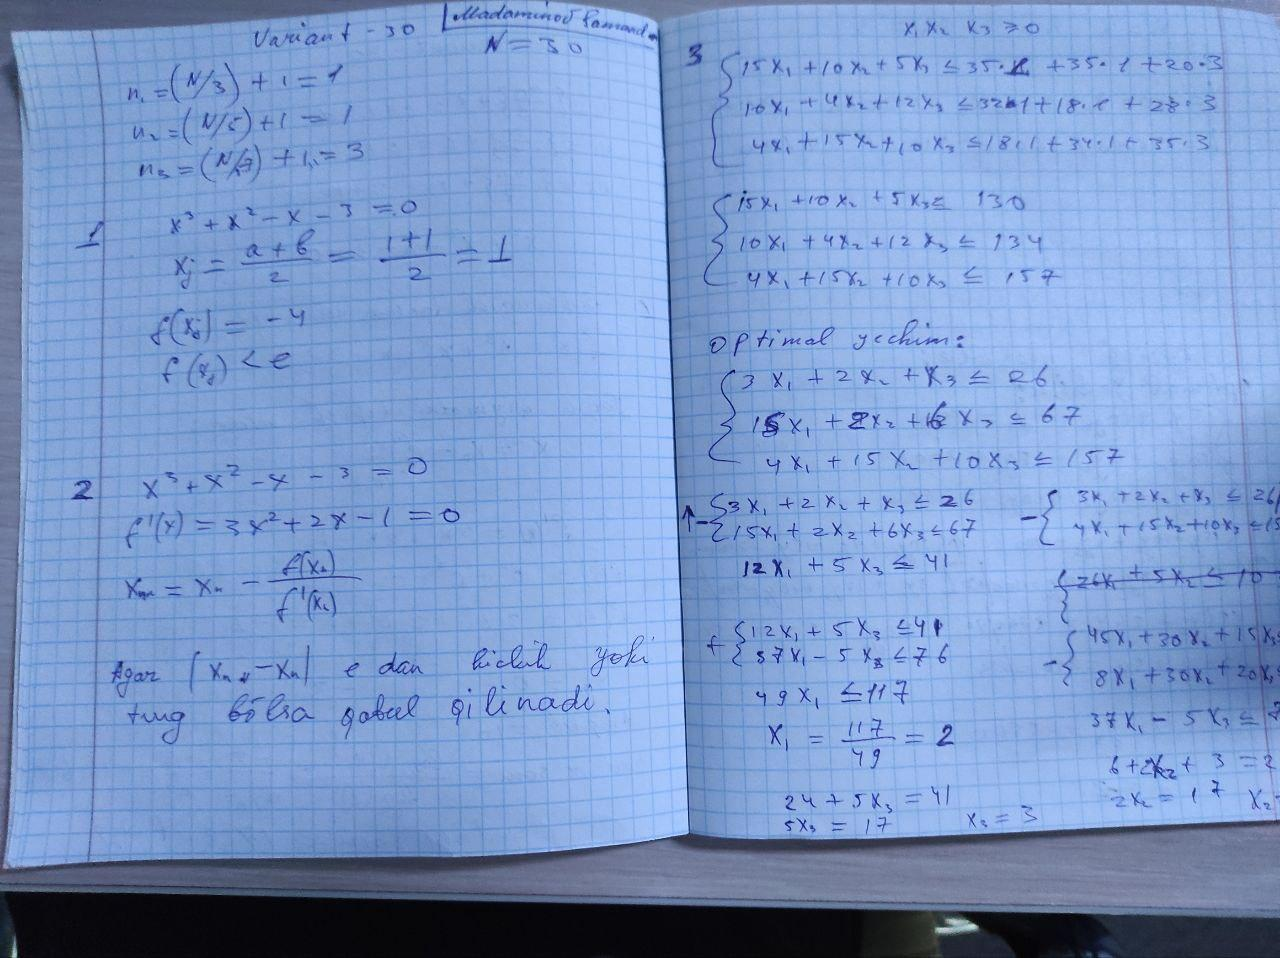 Variant - 30
Madaminov
N = 30
n₁ = (N/3) + 1 = 1
n₂ = (N/5) + 1 = 1
n₃ = (N/7) + 1 = 3
1
x³ + x² - x - 3 = 0
xj = a+b/2 = 1+1/2 = 1
f(xj) = -4
f(xj) < e
2
x³ + x² - x - 3 = 0
f'(x) = 3x² + 2x - 1 = 0
= xn - f(xn)/f'(xn)
Agar | - xn| e dan kichik yoki
teng bo'lsa qabul qilinadi.
3
x₁ x₂ x₃ ≥ 0
15x₁ + 10x₂ + 5x₃ ≤ 35·1 + 35·1 + 20·3
10x₁ + 4x₂ + 12x₃ ≤ 32·1 + 18·1 + 28·3
4x₁ + 15x₂ + 10x₃ ≤ 18·1 + 34·1 + 35·3
15x₁ + 10x₂ + 5x₃ ≤ 130
10x₁ + 4x₂ + 12x₃ ≤ 134
4x₁ + 15x₂ + 10x₃ ≤ 157
optimal yechim:
3x₁ + 2x₂ + x₃ ≤ 26
15x₁ + 2x₂ + 6x₃ ≤ 67
4x₁ + 15x₂ + 10x₃ ≤ 157
3x₁ + 2x₂ + x₃ ≤ 26
15x₁ + 2x₂ + 6x₃ ≤ 67
12x₁ + 5x₃ ≤ 41
+ 12x₁ + 5x₃ ≤ 41
37x₁ - 5x₃ ≤ 76
49x₁ ≤ 117
x₁ = 117/49 = 2
24 + 5x₃ = 41
5x₃ = 17
x₃ = 3
- 3x₁ + 2x₂ + x₃ ≤ 26
4x₁ + 15x₂ + 10x₃ ≤ 15
26x₁ + 5x₂ ≤ 10
- 45x₁ + 30x₂ + 15x₃
8x₁ + 30x₂ + 20x₃
37x₁ - 5x₃ ≤ 7
6 + 2x₂ + 3 = 2
2x₂ = 17
x₂ =